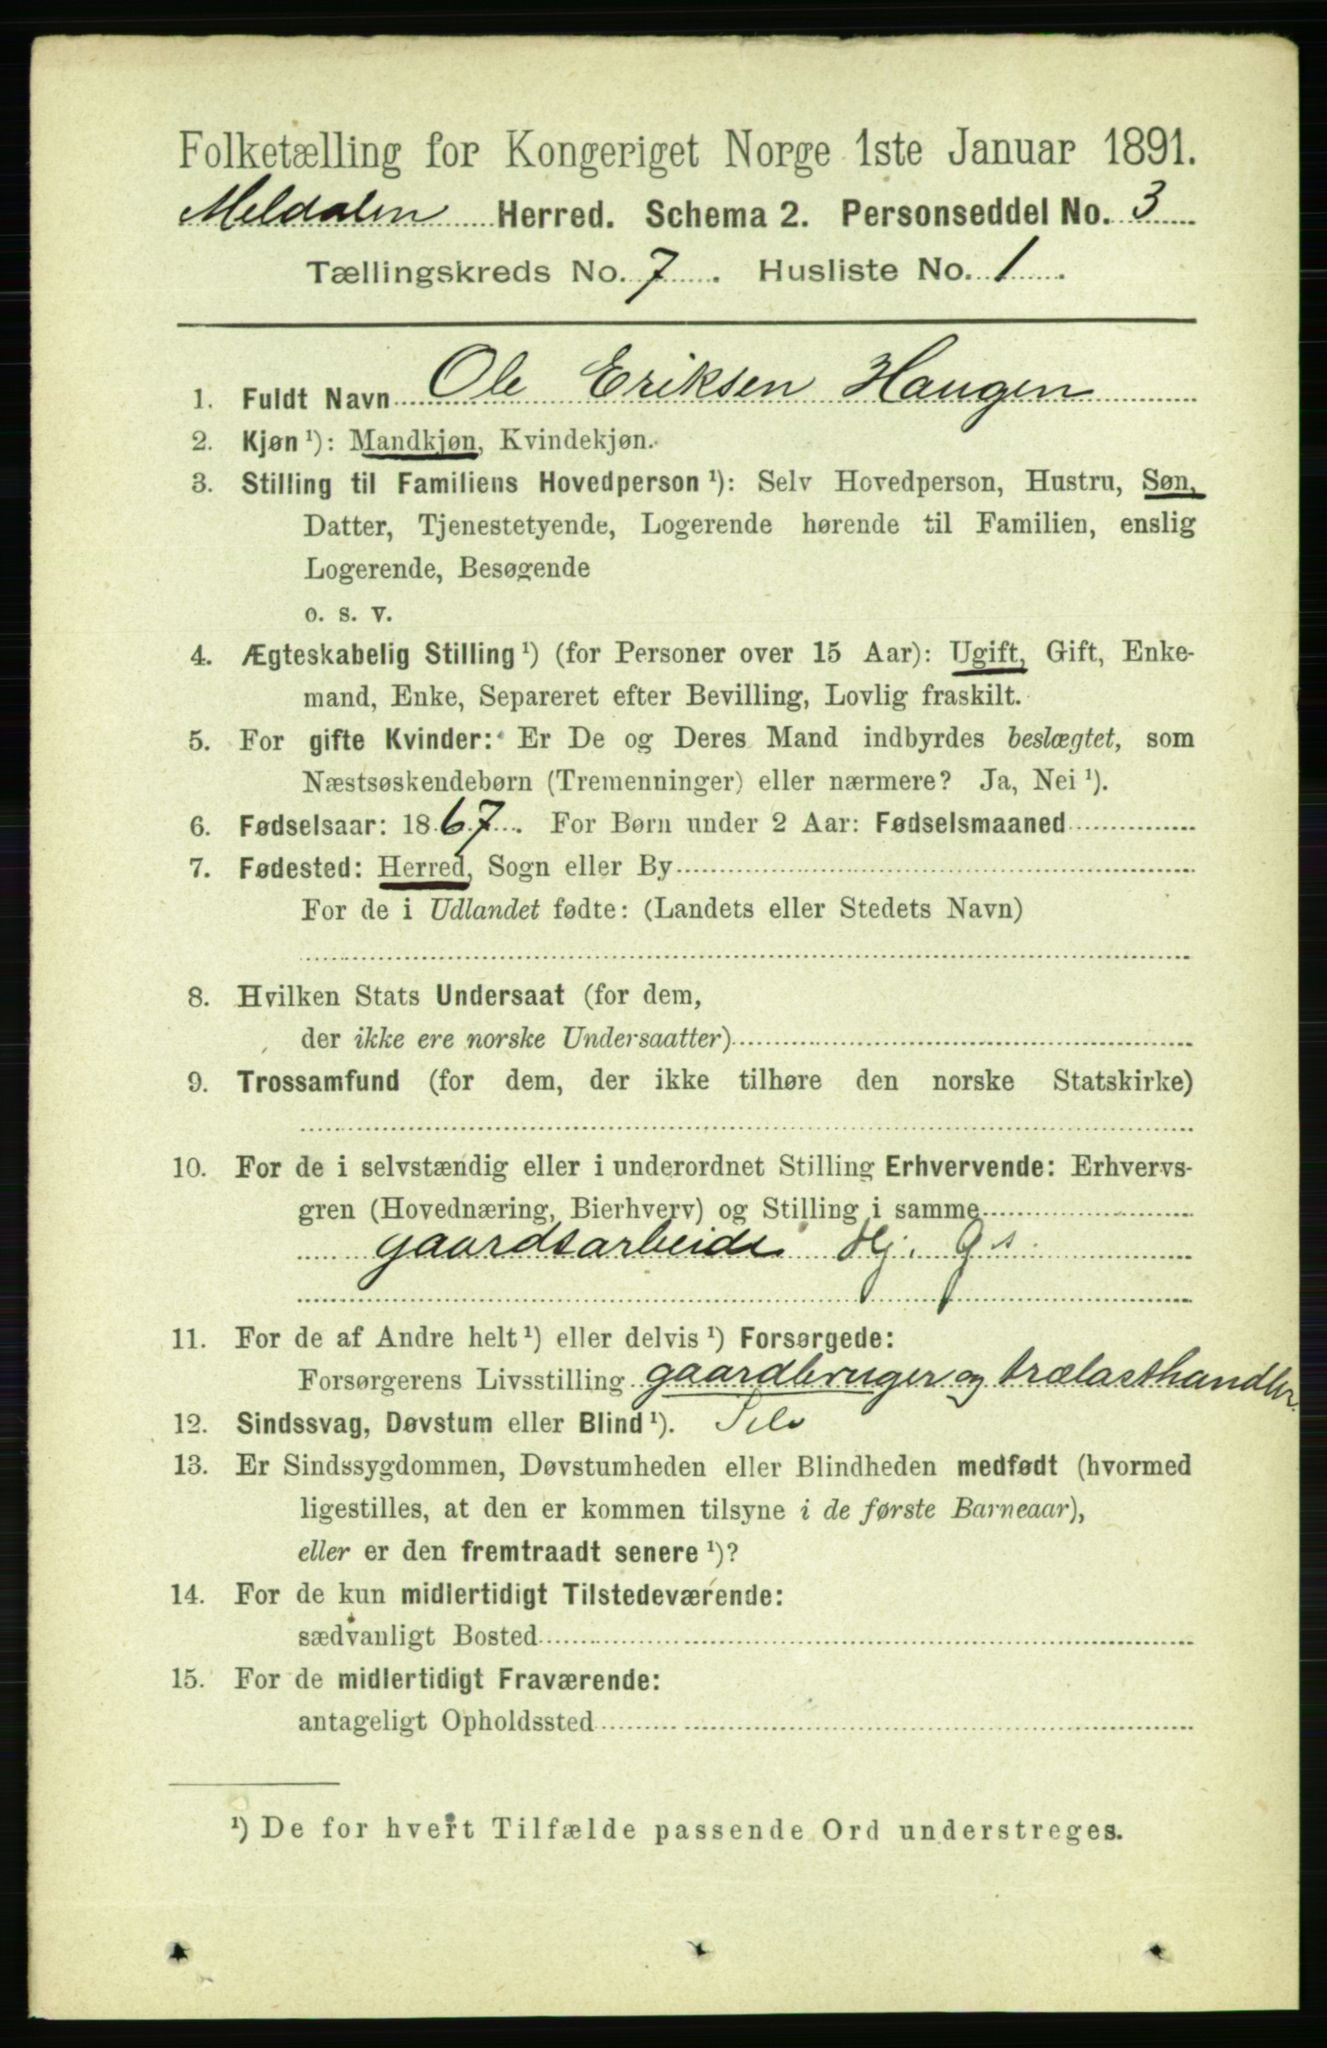 Folketælling for Kongeriget Norge 1ste Januar 1891.
Meldalen Herred. Schema 2. Personseddel No. 3
Tællingskreds No. 7. Husliste No. 1.
1. Fuldt Navn Ole Eriksen Haugen
2. Kjøn¹): Mandkjøn, Kvindekjøn.
3. Stilling til Familiens Hovedperson¹): Selv Hovedperson, Hustru, Søn,
Datter, Tjenestetyende, Logerende hørende til Familien, enslig
Logerende, Besøgende
o. s. v.
4. Ægteskabelig Stilling¹) (for Personer over 15 Aar): Ugift, Gift, Enke-
mand, Enke, Separeret efter Bevilling, Lovlig fraskilt.
5. For gifte Kvinder: Er De og Deres Mand indbyrdes beslægtet, som
Næstsøskendebørn (Tremenninger) eller nærmere? Ja, Nei¹).
6. Fødselsaar: 1867. For Børn under 2 Aar: Fødselsmaaned
7. Fødested: Herred, Sogn eller By
For de i Udlandet fødte: (Landets eller Stedets Navn)
8. Hvilken Stats Undersaat (for dem,
der ikke ere norske Undersaatter)
9. Trossamfund (for dem, der ikke tilhøre den norske Statskirke)
10. For de i selvstændig eller i underordnet Stilling Erhvervende: Erhvervs-
gren (Hovednæring, Bierhverv) og Stilling i samme
gaardsarbeide Hj. gs
11. For de af Andre helt¹) eller delvis¹) Forsørgede:
Forsørgerens Livsstilling gaardbruger og trælasthandler.
12. Sindssvag, Døvstum eller Blind¹).
13. Er Sindssygdommen, Døvstumheden eller Blindheden medfødt (hvormed
ligestilles, at den er kommen tilsyne i de første Barneaar),
eller er den fremtraadt senere¹)?
14. For de kun midlertidigt Tilstedeværende:
sædvanligt Bosted
15. For de midlertidigt Fraværende:
antageligt Opholdssted
¹) De for hvert Tilfælde passende Ord understreges.